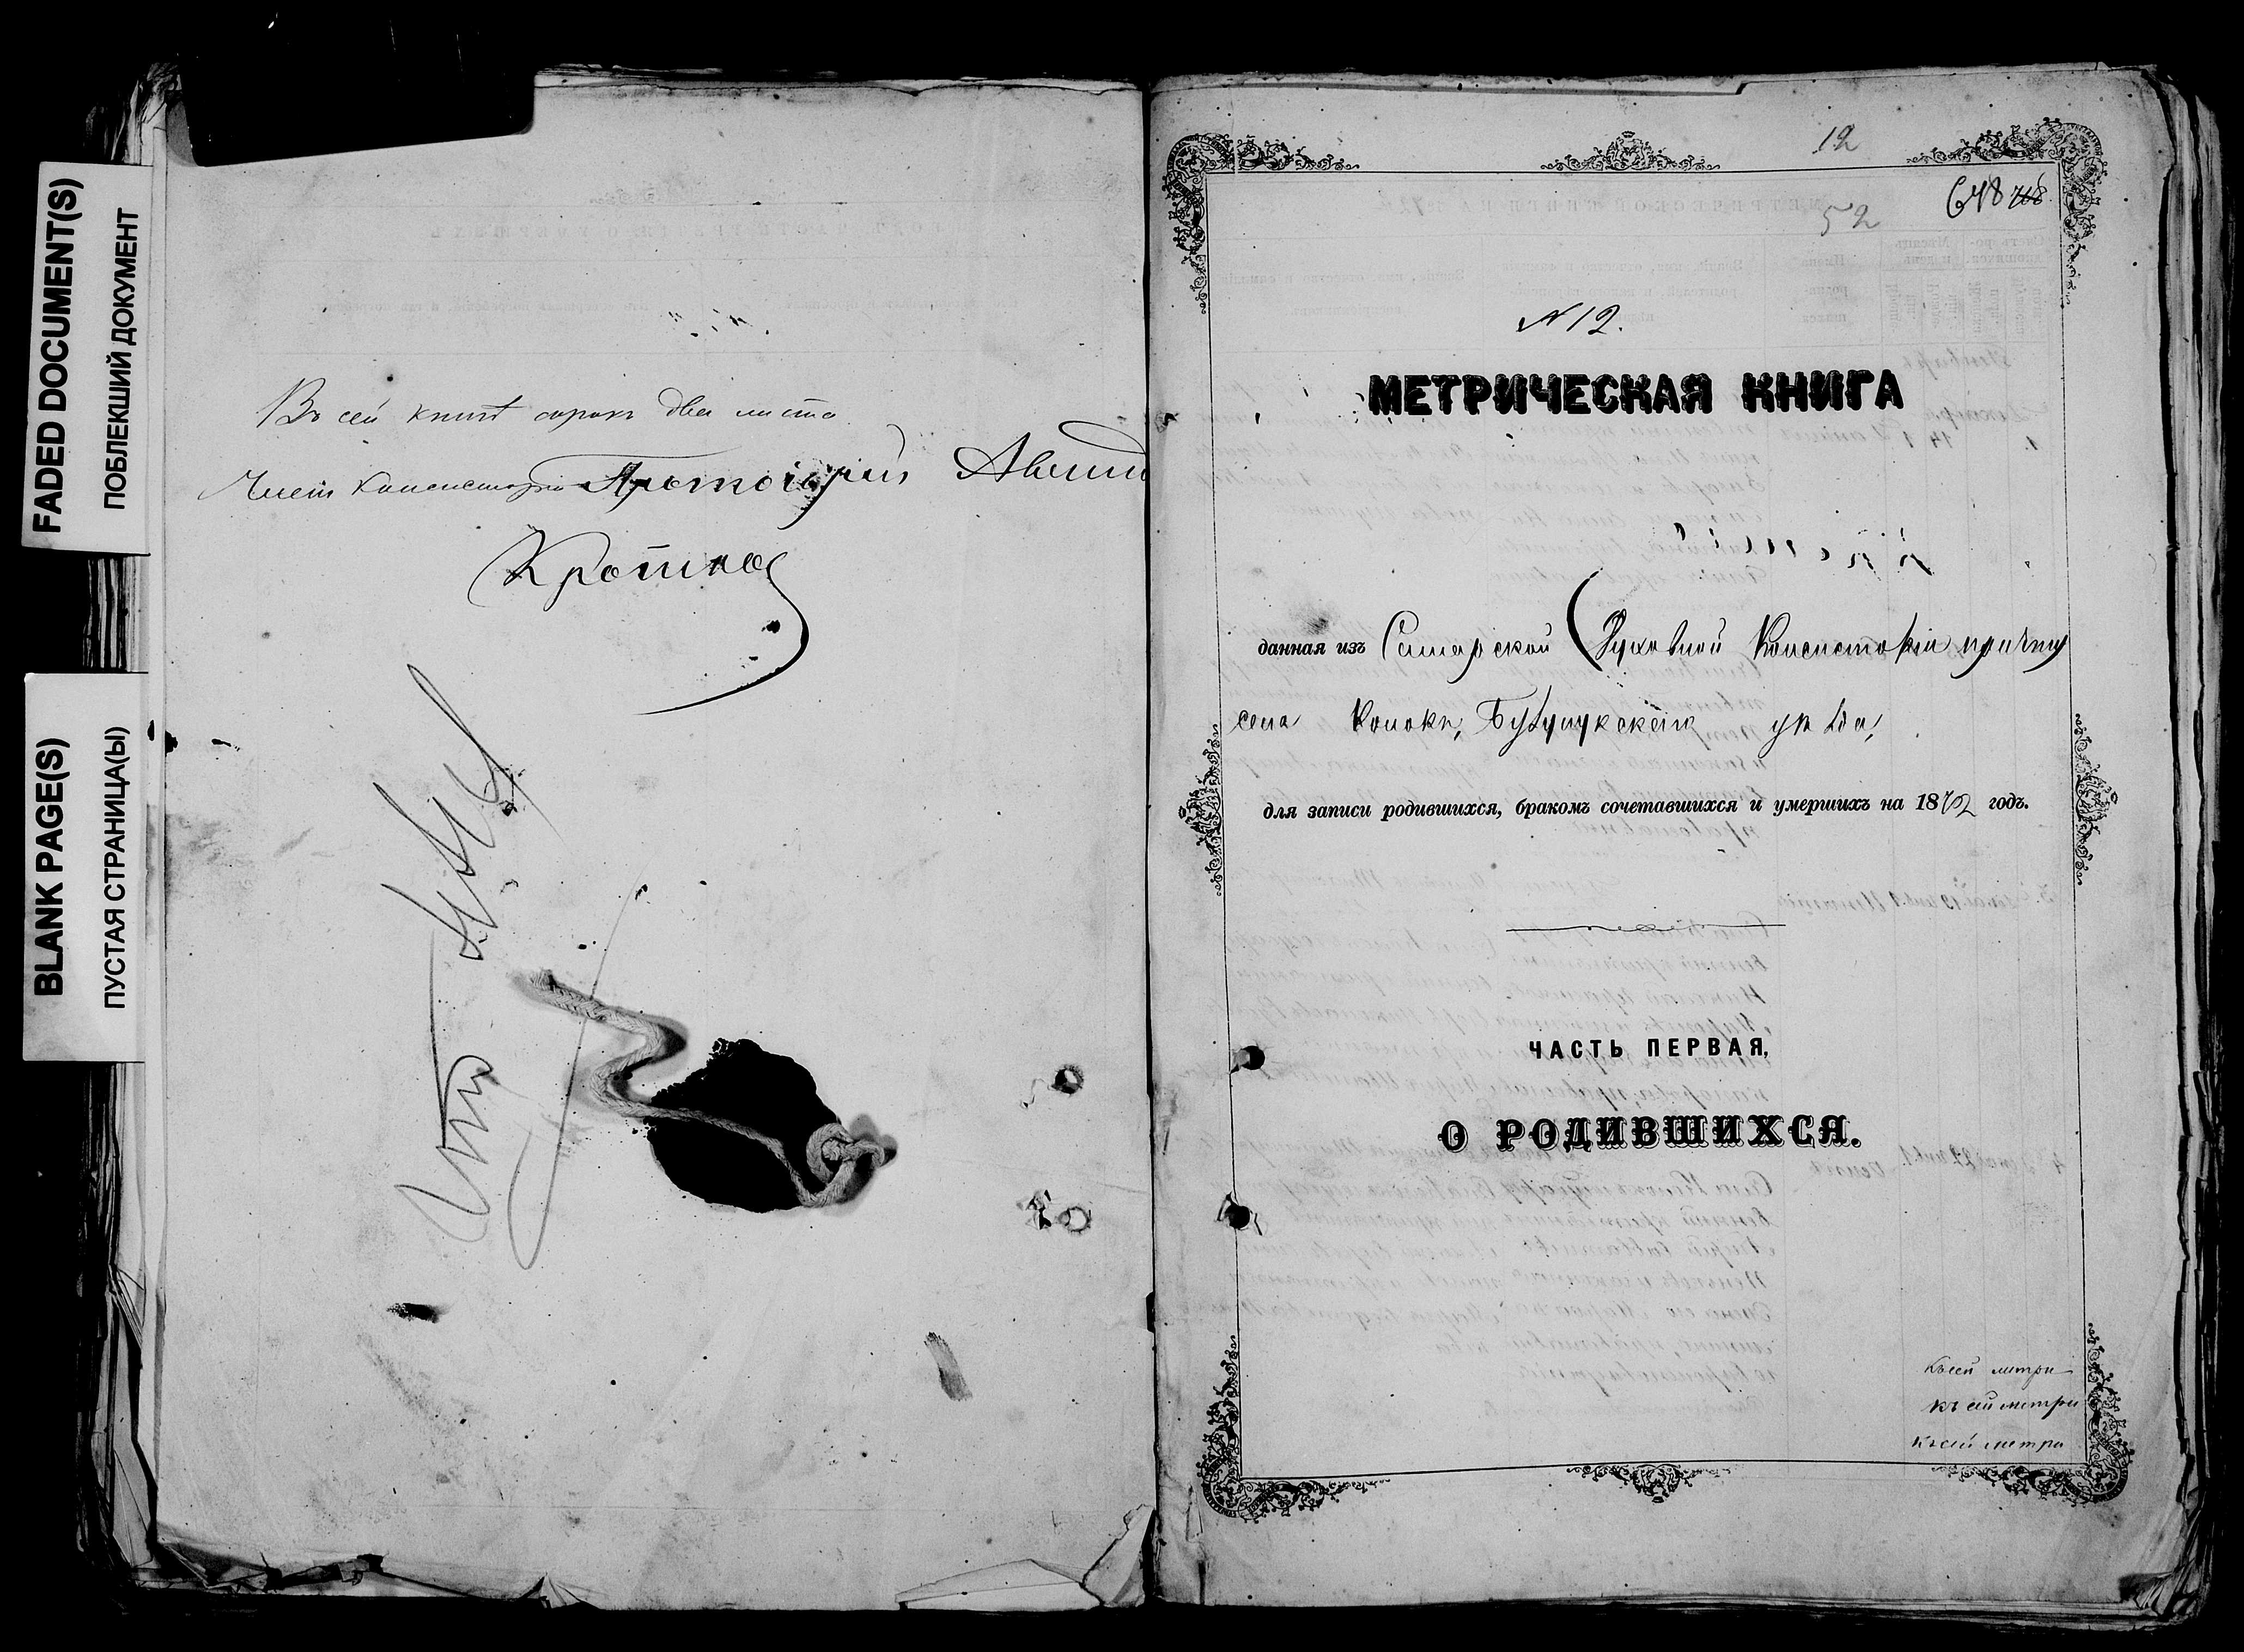 FADED DOCUMENT(S)
ПОБЛЕКШИЙ ДОКУМЕНТ
BLANK PAGE(S)
ПУСТАЯ СТРАНИЦА(Ы)
Въ сей книгѣ сорокъ два листа
Членъ Консисторіи Протоіерей
Кротков
12
648 768
52
N 12.
МЕТРИЧЕСКАЯ КНИГА
данная изъ Самарской Духовной Консисторіи причту
села Бузулукскаго уѣзда,
для записи родившихся, бракомъ сочетавшихся и умершихъ на 1872 годъ.
ЧАСТЬ ПЕРВАЯ,
О РОДИВШИХСЯ.
Къ сей метри
Къ сей метри
Къ сей метри